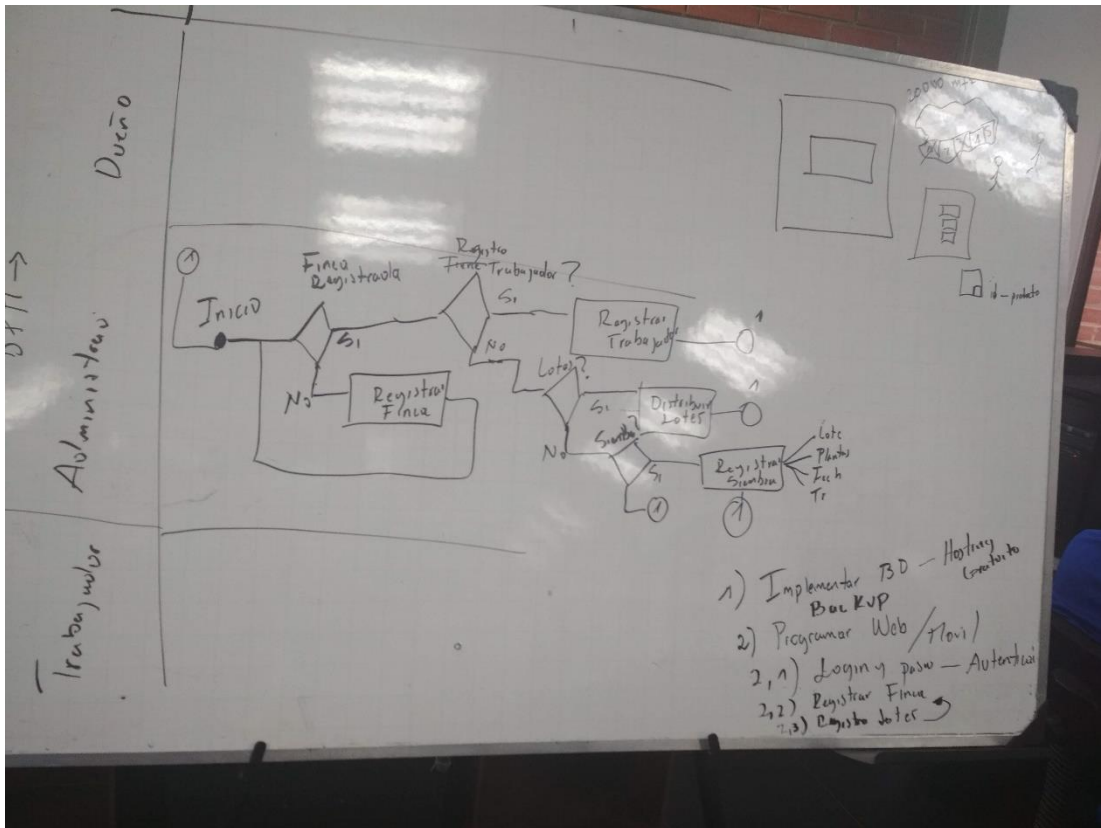 Dueño
Administrad
Trabajador
1
Inicio
Finca
Registrada
Si
No
Registrar
Finca
Registro
Trabajador?
Si
No
Registrar
Trabajador
1
Lotes?
Si
No
Distribuir
Lotes
1
Siembra?
Si
1
Registrar
Siembra
1
Lote
Plantas
Fech
Tr
20000 mt2
id-producto
1) Implementar BD - Hosting
Gratuito
BackUP
2) Programar Web/Movil
2,1) Login y pasw - Autentica
2,2) Registrar Finca
2,3) Registro Lotes